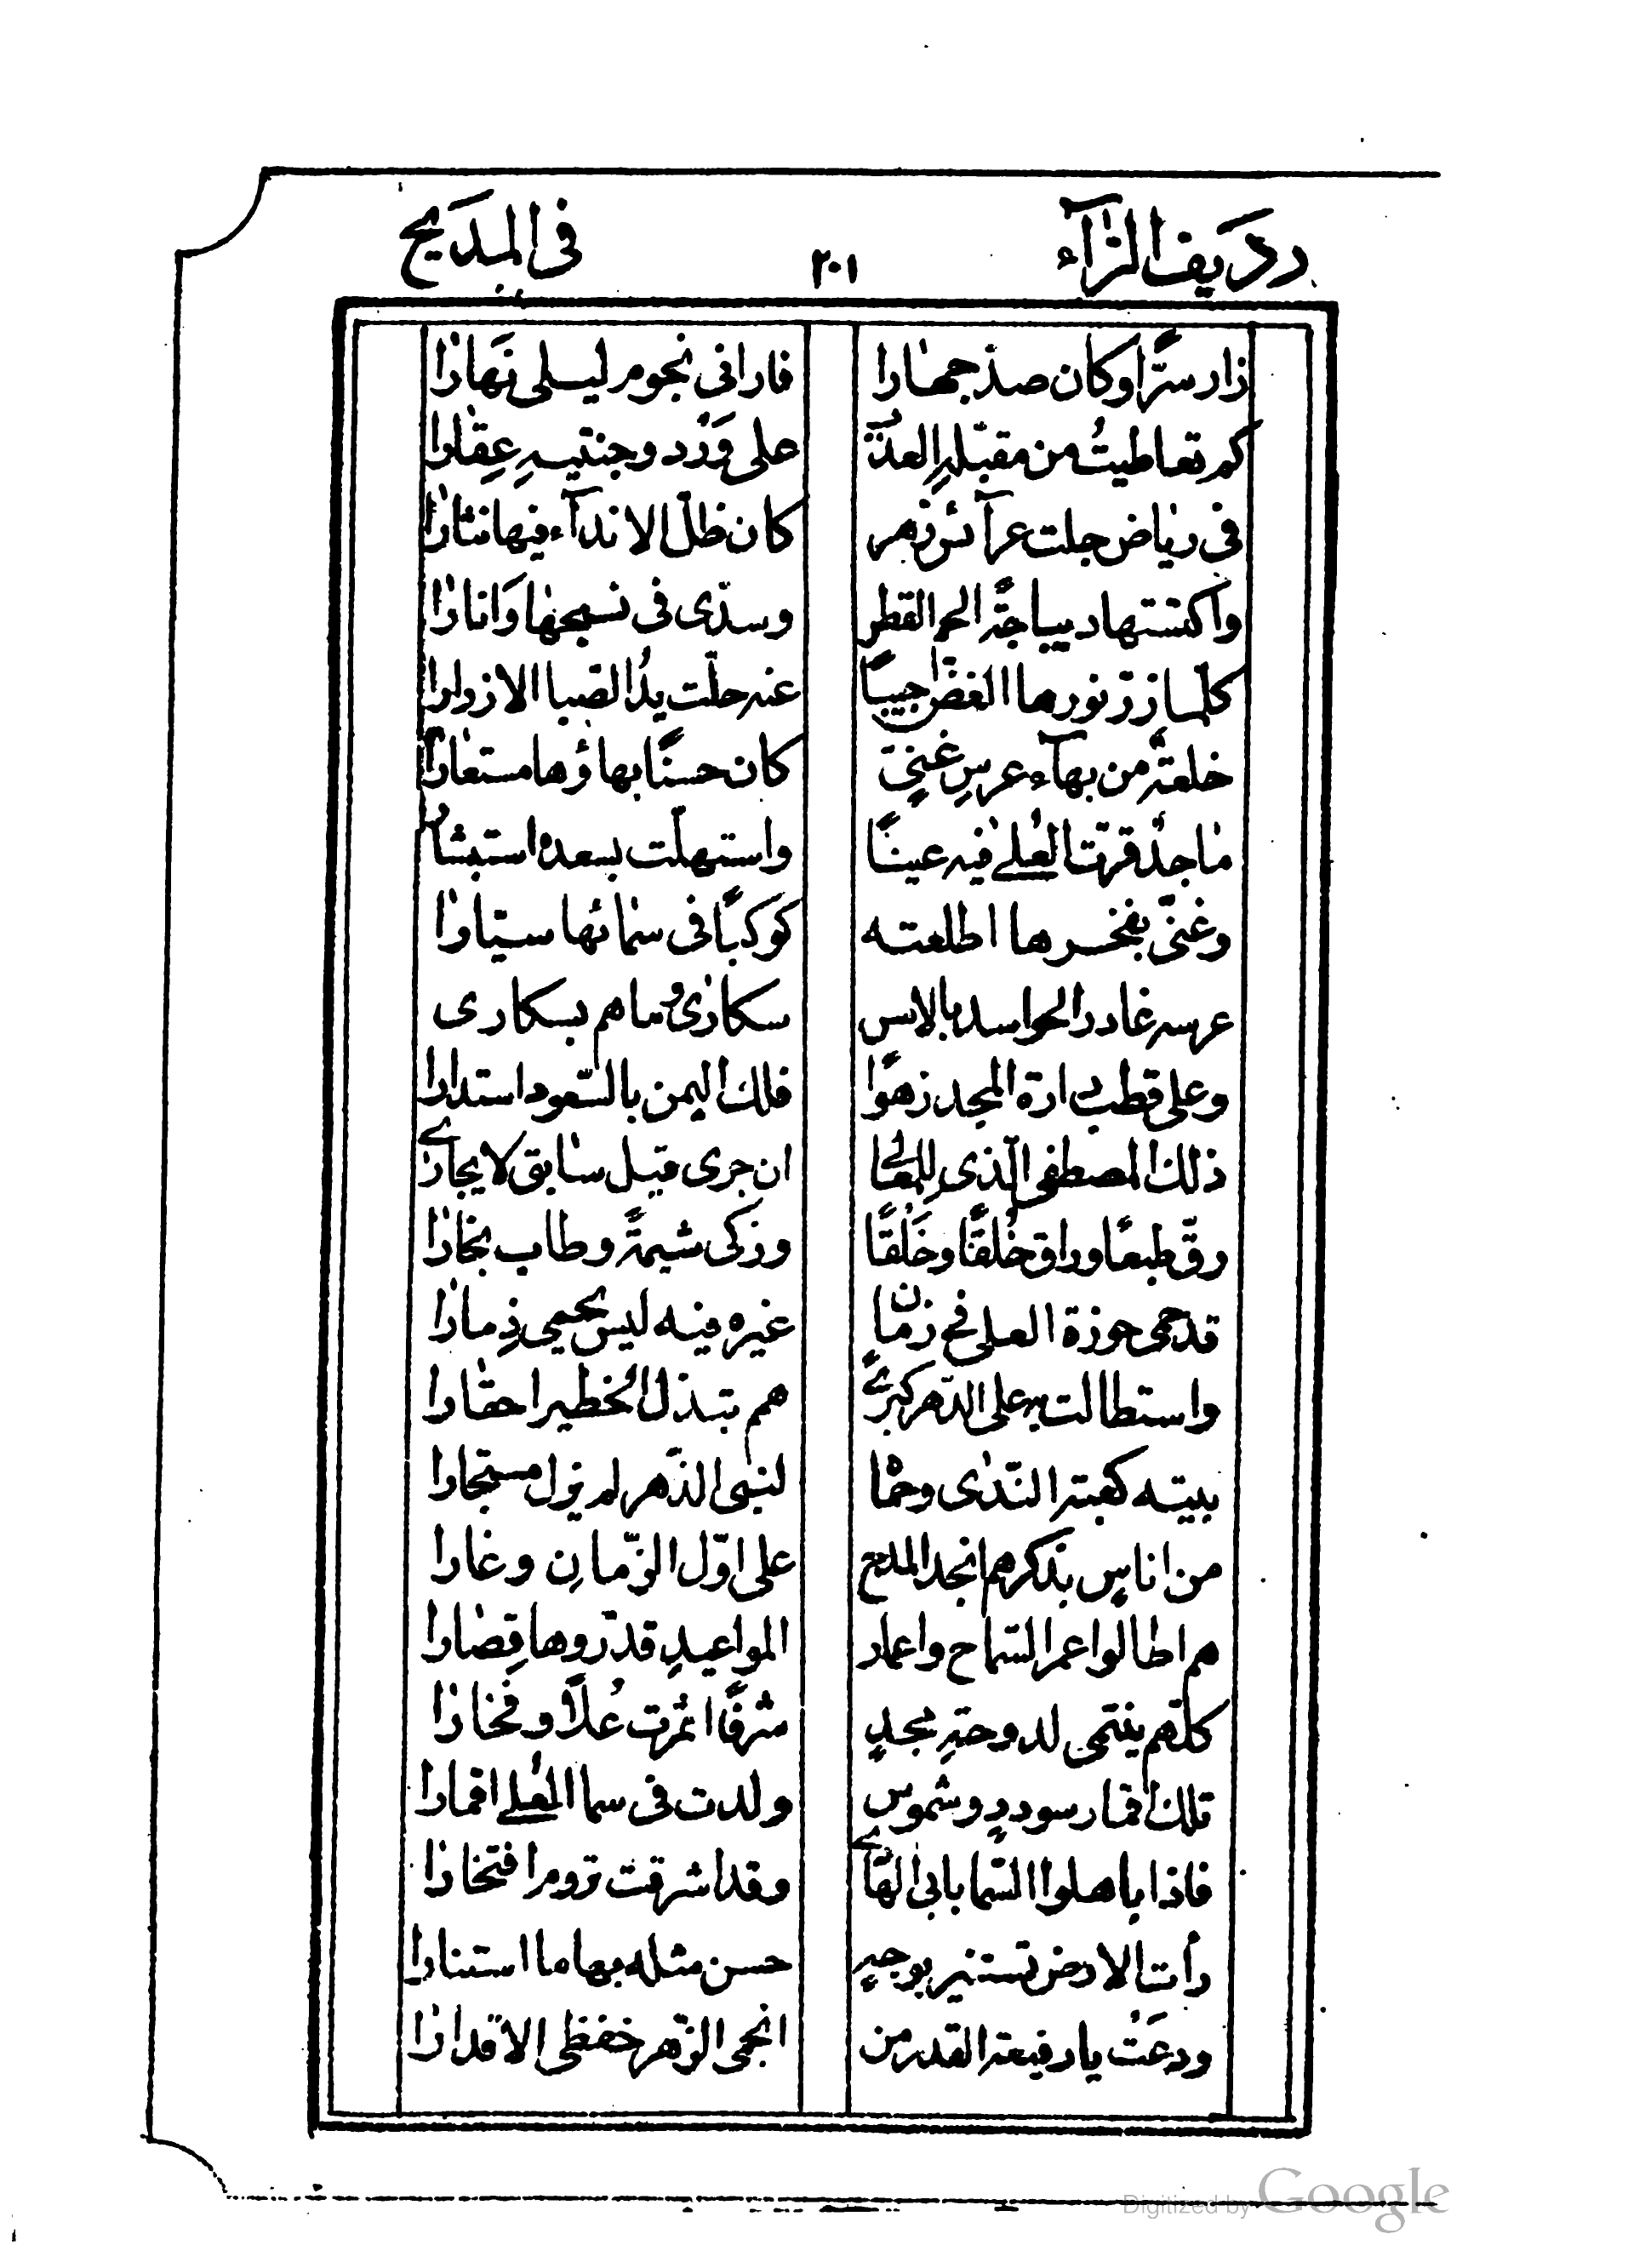 ردیف الرآء ٢٠١ فی المدیح
زار سرًّا وكان صدّ جهارا فارانی نجوم لیلی نَهارا
كم تعاطیتُ من مقبّلهِ العذب علی وَرْد وجنتیهِ عِقارا
فی ریاض جلت عرآئس زهر كان ظلّ الاندآء فیها نثارا
واكتستها دیباجةً القطر وسدّی فی نسجها وَانارا
كلّما زرّ نورها الغضّ جیبًا عنه حلّت یدُ الصّبا الازرارا
خلعةٌ من بهآء عرسِ غنیٍّ كان حسنًا بهاؤها مستعارا
ماجدٌ قرّت العُلی فیه عینًا واستهلّت بسعده استبشارا
وغنیّ بفخرها اطلعته كوكبًا فی سمائها سیّارا
عرسه غادر الحواسد بالامس سكاری وما هم بسكاری
وعلی قطب دارة المجد زهوًا فلك الیمن بالسّعود استدارا
ذلك المصطفی الّذی للمعالی ان جری قیل سابق لا یجاری
رقّ طبعًا وراق خُلقًا وخَلْقًا وزكی شیمةً وطاب نجارا
قد حمی حوزة العلی فی زمان غیره فیه لیس یحمی ذِمارا
واستطالت به علی الدّهر كبرًی همم تبذل الخطیر احتقارا
بیته كعبة النّدی وحما لنبی الدّهر لم یزل مستجارا
من اناسٍ بذكرهم انجد المدح علی اوّل الزّمانِ وغارا
هم اطالوا عمر السّماح واعمار المواعیدِ قدّروها قِصارا
كلّهم ینتمی لدوحةِ مجدٍ شرفًا اثمرت عُلاً وفخارا
تلك اقمار سوددٍ وشموس ولدت فی سما المعلی اقمارا
فاذا باهلوا السّما بابی الهادی وقد اشرقت تروم افتخارا
رأت الارض تستنیر بوجهٍ حسن مثله بها ما استنارا
ودعَتْ یا رفیعة القدر من انجمی الزّهر خفّظی الاقدارا
Digitized by Google